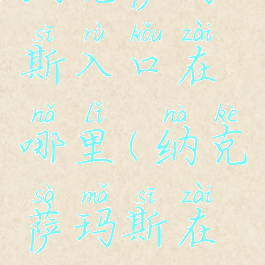 sī rù kǒu zài
斯入口在
nǎ lǐ nà kè
哪里(纳克
sà mǎ sī zài
萨玛斯在